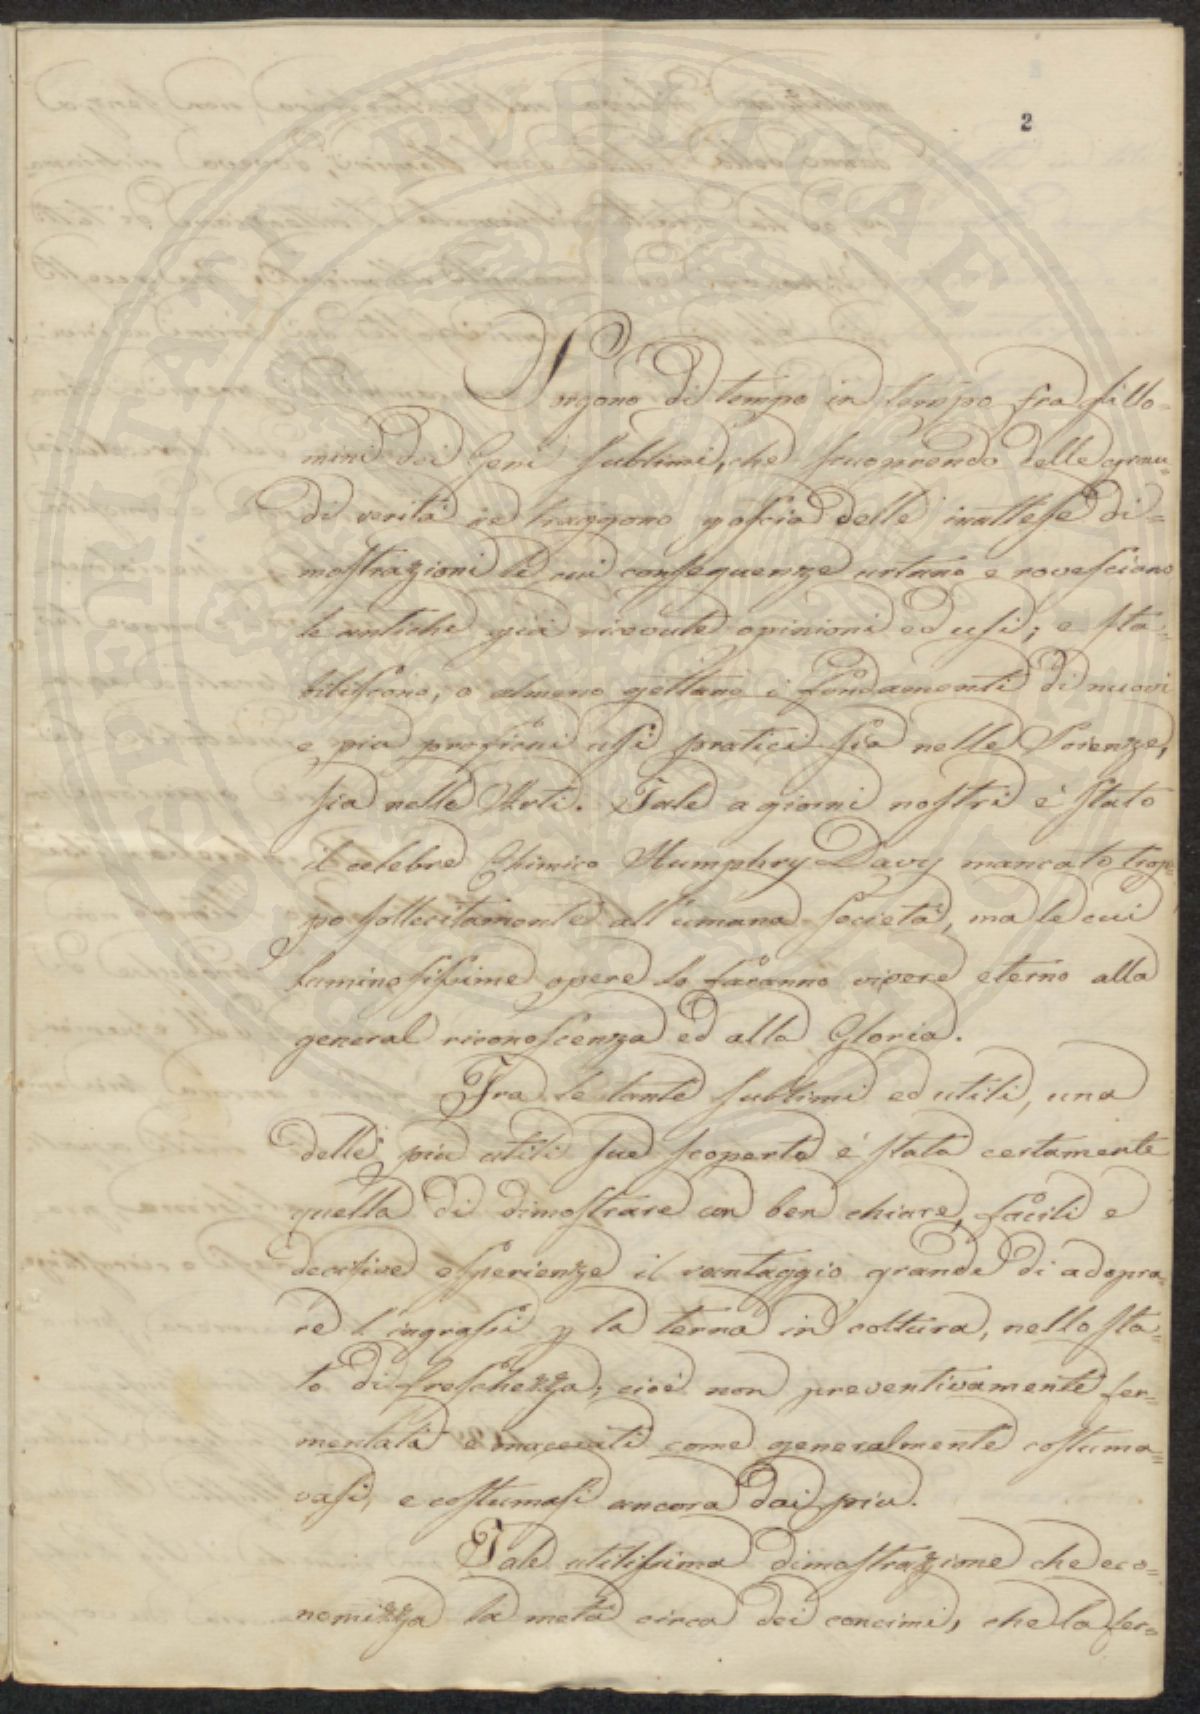 2
Sorgono di tempo in tempo fra gli Uo=
mini dei Genj sublimi, che scuoprendo delle gran=
di verità ne traggono poscia delle inattese di=
mostrazioni le cui conseguenze urtano e rovesciano
le antiche già ricevute opinioni ed usi; e sta=
biliscono, o almeno gettano i fondamenti di nuovi
e più proficui usi pratici sia nelle Scienze,
sia nelle Arti. Tale a giorni nostri è stato
il celebre Chimico Humphry Davy mancato trop=
po sollecitamente all'umana società, ma le cui
luminosissime opere lo faranno vivere eterno alla
general riconoscenza ed alla Gloria.
Fra le tante sublimi ed utili, una
delle più utili sue scoperte è stata certamente
quella di dimostrare con ben chiare, facili e
decisive esperienze il vantaggio grande di adopra=
re l'ingrassi p la terra in coltura, nello sta=
to di freschezza, cioè non preventivamente fer=
mentati e macerati come generalmente costuma=
vasi, e costumasi ancora dai più.
Tale utilissima dimostrazione che eco=
nomizza la metà circa dei concimi, che la fer=